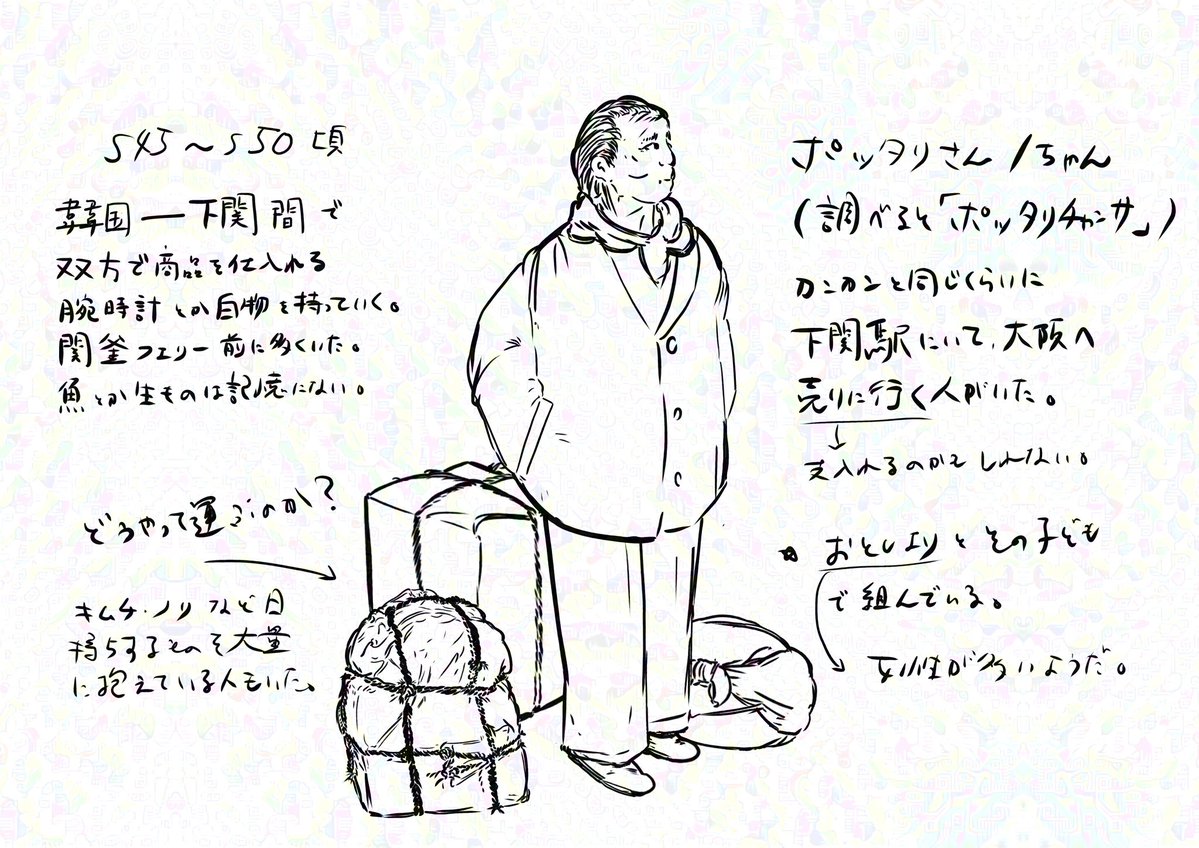 S45〜S50頃
韓国ー下関間で
双方で商品を仕入れる
腕時計とか白物を持っていく。
関釜フェリー前に多くいた。
魚とか生ものは記憶にない。
どうやって運ぶのか?
キムチ・ノリなど日
持ちするものを大量
に抱えている人もいた。
ポッタリさん/ちゃん
(調べると「ポッタリチャンサ」)
カンカンと同じくらいに
下関駅にいて、大阪へ
売りに行く人がいた。
入れるのかもしれない。
おとしよりとその子ども
で組んでいる。
女性が多いようだ。